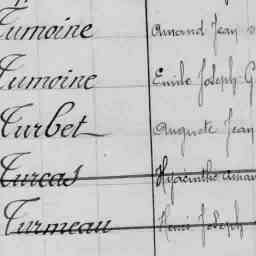 Tumoine Amand Jean
Tumoine Emile Joseph G
Turbet Auguste Jean
Turcas Hyacinthe Amand
Turmeau Henri Joseph